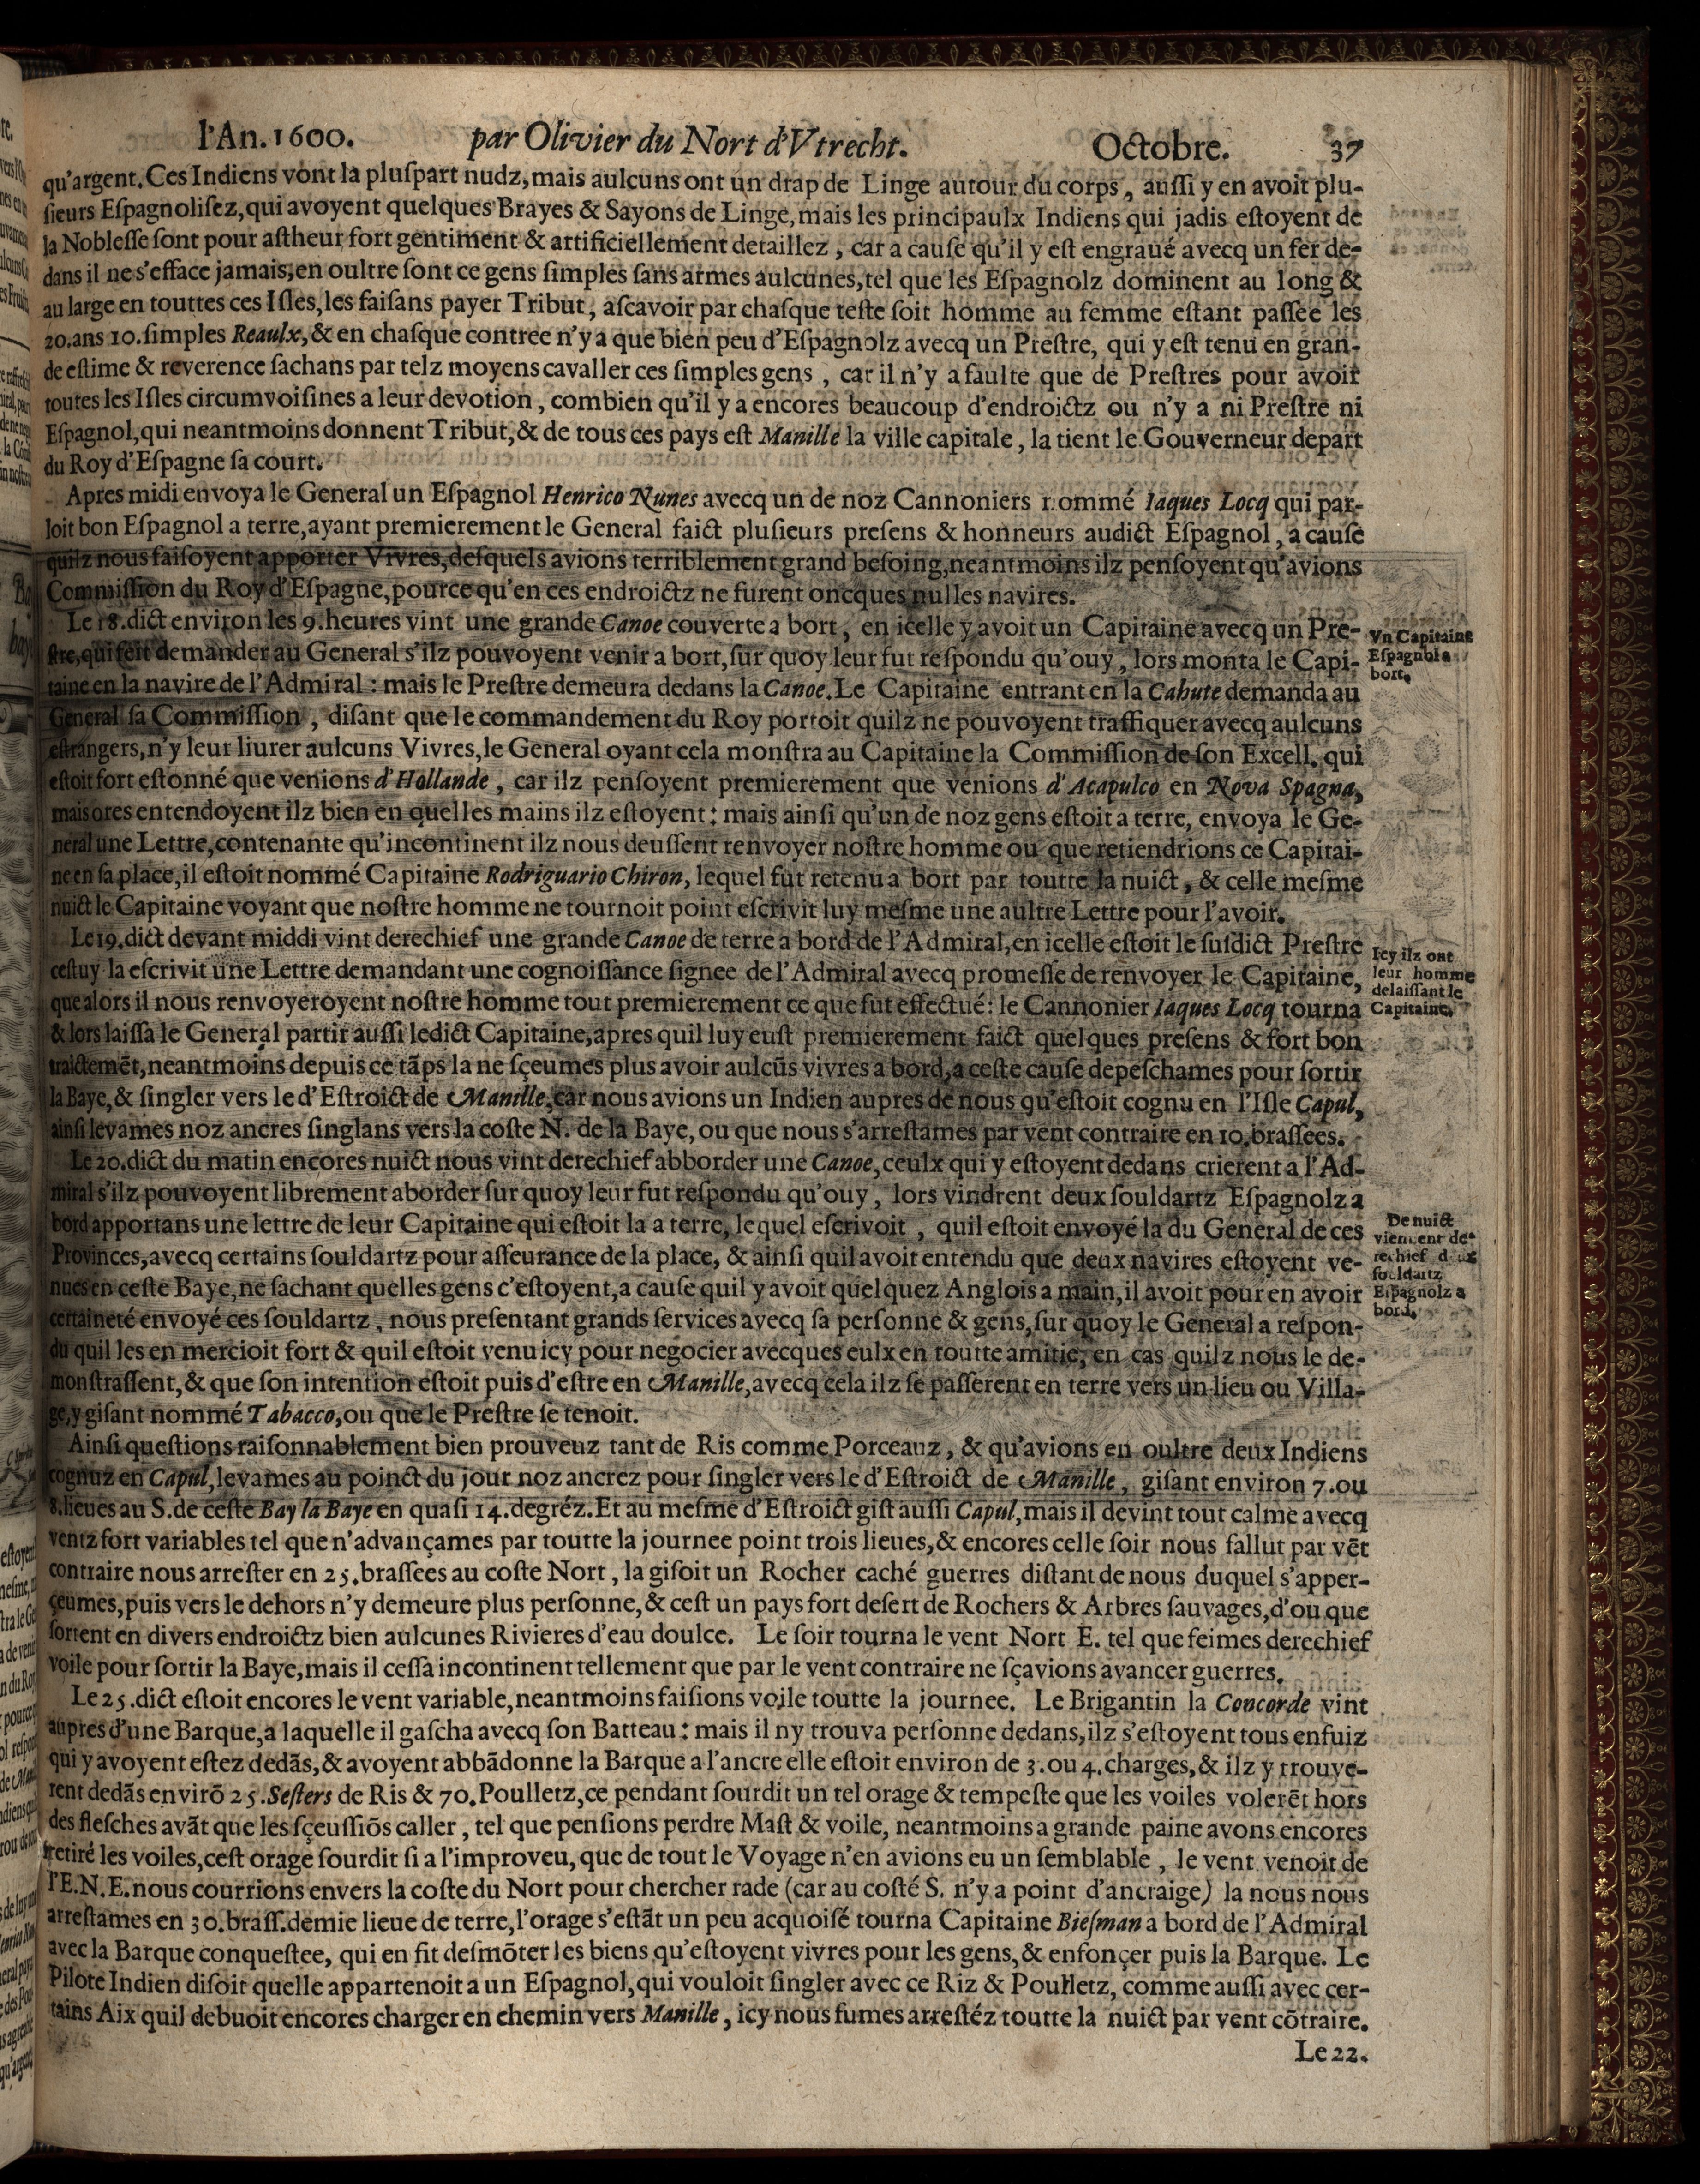 l'An. 1600. par Olivier du Nort d'Vtrecht. Octobre. 37
qu'argent. Ces Indiens vont la pluſpart nudz, mais aulcuns ont un drap de Linge autour du corps, auſſi y en avoit plu-
ſieurs Eſpagnoliſez, qui avoyent quelques Brayes & Sayons de Linge, mais les principaulx Indiens qui jadis eſtoyent de
la Nobleſſe ſont pour aſtheur fort gentiment & artificiellement detaillez, car a cauſe qu'il y eſt engraué avecq un fer de-
dans il ne s'efface jamais, en oultre ſont ce gens ſimples ſans armes aulcunes, tel que les Eſpagnolz dominent au long &
au large en touttes ces Iſles, les faiſans payer Tribut, aſcavoir par chaſque teſte ſoit homme au femme eſtant paſſée les
20. ans 10. ſimples Reaulx, & en chaſque contree n'y a que bien peu d'Eſpagnolz avecq un Preſtre, qui y eſt tenu en gran-
de eſtime & reverence ſachans par telz moyens cavaller ces ſimples gens, car il n'y a faulte que de Preſtres pour avoir
toutes les Iſles circumvoiſines a leur devotion, combien qu'il y a encores beaucoup d'endroictz ou n'y a ni Preſtre ni
Eſpagnol, qui neantmoins donnent Tribut, & de tous ces pays eſt Manille la ville capitale, la tient le Gouverneur depart
du Roy d'Eſpagne ſa court.
Apres midi envoya le General un Eſpagnol Henrico Nunes avecq un de noz Cannoniers nommé Iaques Locq qui par-
loit bon Eſpagnol a terre, ayant premierement le General faict pluſieurs preſens & honneurs audict Eſpagnol, a cauſe
quilz nous faiſoyent apporter Vivres, deſquels avions terriblement grand beſoing, neantmoins ilz penſoyent qu'avions
Commiſſion du Roy d'Eſpagne, pource qu'en ces endroictz ne furent oncques nulles navires.
Le 18. dict environ les 9. heures vint une grande Canoe couverte a bort, en icelle y avoit un Capitaine avecq un Pre-
ſtre, qui feit demander au General s'ilz pouvoyent venir a bort, ſur quoy leur fut reſpondu qu'ouy, lors monta le Capi-
taine en la navire de l'Admiral : mais le Preſtre demeura dedans la Canoe. Le Capitaine entrant en la Cahute demanda au
General ſa Commiſſion, diſant que le commandement du Roy portoit quilz ne pouvoyent traffiquer avecq aulcuns
eſtrangers, n'y leur liurer aulcuns Vivres, le General oyant cela monſtra au Capitaine la Commiſſion de ſon Excell. qui
eſtoit fort eſtonné que venions d'Hollande, car ilz penſoyent premierement que venions d'Acapulco en Nova Spagna,
mais ores entendoyent ilz bien en quelles mains ilz eſtoyent : mais ainſi qu'un de noz gens eſtoit a terre, envoya le Ge-
neral une Lettre, contenante qu'incontinent ilz nous deuſſent renvoyer noſtre homme ou que retiendrions ce Capitai-
ne en ſa place, il eſtoit nommé Capitaine Rodriguario Chiron, lequel fut retenu a bort par toutte la nuict, & celle meſme
nuict le Capitaine voyant que noſtre homme ne tournoit point eſcrivit luy meſme une aultre Lettre pour l'avoir.
Le 19. dict devant middi vint derechief une grande Canoe de terre a bord de l'Admiral, en icelle eſtoit le ſuſdict Preſtre
ceſtuy la eſcrivit une Lettre demandant une cognoiſſance ſignee de l'Admiral avecq promeſſe de renvoyer le Capitaine,
que alors il nous renvoyeroyent noſtre homme tout premierement ce que fut effectué : le Cannonier Iaques Locq tourna
& lors laiſſa le General partir auſſi ledict Capitaine, apres quil luy euſt premierement faict quelques preſens & fort bon
traictemẽt, neantmoins depuis ce tãps la ne ſçeumes plus avoir aulcũs vivres a bord, a ceſte cauſe depeſchames pour ſortir
la Baye, & ſingler vers le d'Eſtroict de Manille, car nous avions un Indien aupres de nous qu'eſtoit cognu en l'Iſle Capul,
ainſi levames noz ancres ſinglans vers la coſte N. de la Baye, ou que nous s'arreſtames par vent contraire en 10. braſſees.
Le 20. dict du matin encores nuict nous vint derechief abborder une Canoe, ceulx qui y eſtoyent dedans crierent a l'Ad-
miral s'ilz pouvoyent librement aborder ſur quoy leur fut reſpondu qu'ouy, lors vindrent deux ſouldartz Eſpagnolz a
bord apportans une lettre de leur Capitaine qui eſtoit la a terre, lequel eſcrivoit, quil eſtoit envoyé la du General de ces
Provinces, avecq certains ſouldartz pour aſſeurance de la place, & ainſi quil avoit entendu que deux navires eſtoyent ve-
nues en ceſte Baye, ne ſachant quelles gens c'eſtoyent, a cauſe quil y avoit quelquez Anglois a main, il avoit pour en avoir
certaineté envoyé ces ſouldartz, nous preſentant grands ſervices avecq ſa perſonne & gens, ſur quoy le General a reſpon-
du quil les en mercioit fort & quil eſtoit venu icy pour negocier avecques eulx en toutte amitie, en cas quilz nous le de-
monſtraſſent, & que ſon intention eſtoit puis d'eſtre en Manille, avecq cela ilz ſe paſſerent en terre vers un lieu ou Villa-
ge, y giſant nommé Tabacco, ou que le Preſtre ſe tenoit.
Ainſi queſtions raiſonnablement bien prouveuz tant de Ris comme Porceauz, & qu'avions en oultre deux Indiens
cognuz en Capul, levames au poinct du jour noz ancrez pour ſingler vers le d'Eſtroict de Manille, giſant environ 7. ou
8. lieues au S. de ceſte Bay la Baye en quaſi 14. degréz. Et au meſme d'Eſtroict giſt auſſi Capul, mais il devint tout calme avecq
ventz fort variables tel que n'advançames par toutte la journee point trois lieues, & encores celle ſoir nous fallut par vẽt
contraire nous arreſter en 25. braſſees au coſte Nort, la giſoit un Rocher caché guerres diſtant de nous duquel s'apper-
çeumes, puis vers le dehors n'y demeure plus perſonne, & ceſt un pays fort deſert de Rochers & Arbres ſauvages, d'ou que
ſortent en divers endroictz bien aulcunes Rivieres d'eau doulce. Le ſoir tourna le vent Nort E. tel que feimes derechief
voile pour ſortir la Baye, mais il ceſſa incontinent tellement que par le vent contraire ne ſçavions avancer guerres.
Le 25. dict eſtoit encores le vent variable, neantmoins faiſions voile toutte la journee. Le Brigantin la Concorde vint
aupres d'une Barque, a laquelle il gaſcha avecq ſon Batteau : mais il ny trouva perſonne dedans, ilz s'eſtoyent tous enfuiz
qui y avoyent eſtez dedãs, & avoyent abbãdonne la Barque a l'ancre elle eſtoit environ de 3. ou 4. charges, & ilz y trouve-
rent dedãs envirõ 25. Seſters de Ris & 70. Poulletz, ce pendant ſourdit un tel orage & tempeſte que les voiles volerẽt hors
des fleſches avãt que les ſçeuſſiõs caller, tel que penſions perdre Maſt & voile, neantmoins a grande paine avons encores
retiré les voiles, ceſt orage ſourdit ſi a l'improveu, que de tout le Voyage n'en avions eu un ſemblable, le vent venoit de
l'E.N.E. nous courrions envers la coſte du Nort pour chercher rade (car au coſté S. n'y a point d'ancraige) la nous nous
arreſtames en 30. braſſ. demie lieue de terre, l'orage s'eſtãt un peu acquoiſé tourna Capitaine Bieſman a bord de l'Admiral
avec la Barque conqueſtee, qui en fit deſmõter les biens qu'eſtoyent vivres pour les gens, & enfonçer puis la Barque. Le
Pilote Indien diſoit quelle appartenoit a un Eſpagnol, qui vouloit ſingler avec ce Riz & Poulletz, comme auſſi avec cer-
tains Aix quil debuoit encores charger en chemin vers Manille, icy nous fumes arreſtéz toutte la nuict par vent cõtraire.
Le 22.
Vn Capitaine
Eſpagnol a
bort.
Icy ilz ont
leur homme
delaiſſant le
Capitaine.
De nuict
viennent de-
rechief deux
ſouldartz
Eſpagnolz a
bord.